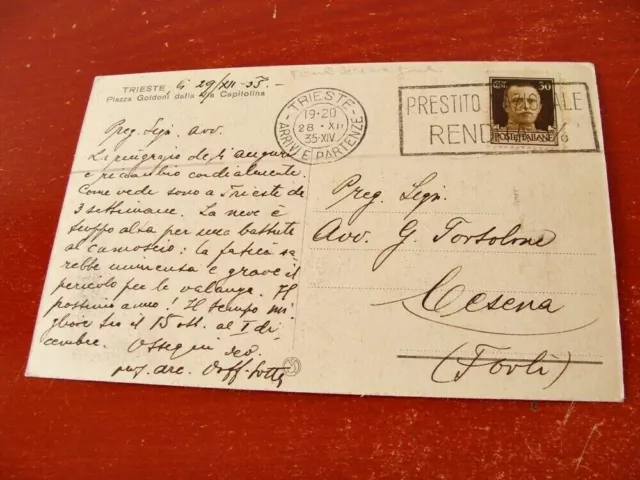 TRIESTE li 29/XII-35-
Piazza Goldoni dalla Via Capitolina
Preg. Sign. Avv.
La ringrazio degli auguri
e ricambio cordialmente.
Come vede sono a Trieste da
3 settimane. La neve è
troppo alta per una battuta
al camoscio: la fatica sa=
rebbe immensa e grave il
pericolo per le valanga. Al
prossimo anno! Il tempo mi=
gliore sia il 15 ott. al I di=
cembre. Ossequi
TRIESTE
19-20
28 · XII
35·XIV
ARRIVI E PARTENZE
PRESTITO
REND %
CENT. 30
POSTE ITALIANE
Preg. Sign.
Avv. G. Tortolone
Cesena
(Forlì)